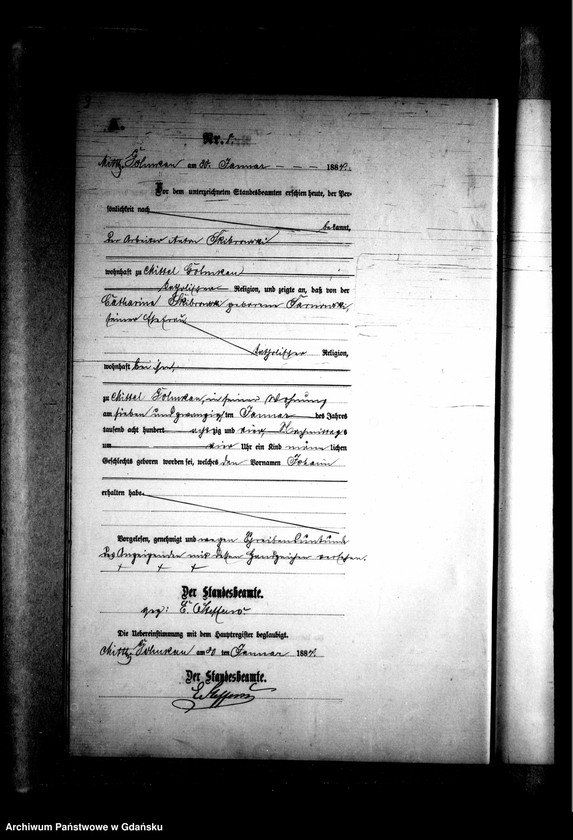 A.
Nr.
Mittl. Golmkau am 30. Januar 1884.
Vor dem unterzeichneten Standesbeamten erschien heute, der Per-
sönlichkeit nach
bekannt,
der Arbeiter Anton Skibrowski
wohnhaft zu Mittel Golmkau
katholischer Religion, und zeigte an, daß von der
Catharina Skibrowski geborenen
seiner Ehefrau
katholischer Religion,
wohnhaft bei ihm
zu Mittel Golmkau, in seiner Wohnung
am sieben und zwanzigsten Januar des Jahres
tausend acht hundert achtzig und vier, Nachmittags
um vier Uhr ein Kind männlichen
Geschlechts geboren worden sei, welches den Vornamen Johann
erhalten habe.
Vorgelesen, genehmigt und wegen Schreibensunkunde
des Anzeigenden mit dessen Handzeichen versehen.
+ + +
Der Standesbeamte.
gez: E. Steffens.
Die Uebereinstimmung mit dem Hauptregister beglaubigt.
Mittl. Golmkau am 30 ten Januar 1884.
Der Standesbeamte.
E Steffens
Archiwum Państwowe w Gdańsku